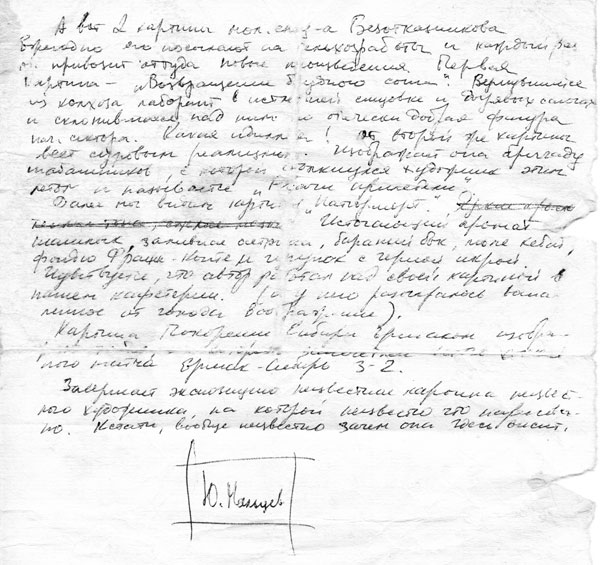 А вот 2 картины пол. спец-а Безотказникова
Ежегодно его посылают на сельхозработы и каждый раз
он привозит оттуда новые произведения. Первая
картина – „Возвращение блудного сына". Вернувшийся
из колхоза лаборант в истлевшей спецовке и дырявых сапогах
и склонившаяся над ним отечески добрая фигура
нач. сектора. Какая идиллия! От второй же картины
веет суровым реализмом. Изображает она бригаду
шабашников, с которой столкнулся художник этим
летом и называется „Грачи прилетели".
Далее мы видим картину „Натюрморт".
Источающий аромат
шашлык, заливная осетрина, бараний бок, люля кебаб,
фондю Франш-Конте и с черной икрой.
Чувствуется, что автор работал над своей картиной в
нашем кафетерии. (а у него разыгралось
от голода воображение).
Картина Покорение Сибири Ермаком изобра-
ного матча Ермак-Сибирь 3-2.
Завершает экспозицию неизвестная картина неизвест-
ного художника, на которой неизвестно что нарисова-
но. Кстати, вообще неизвестно зачем она здесь висит.
Ю. Мальцев